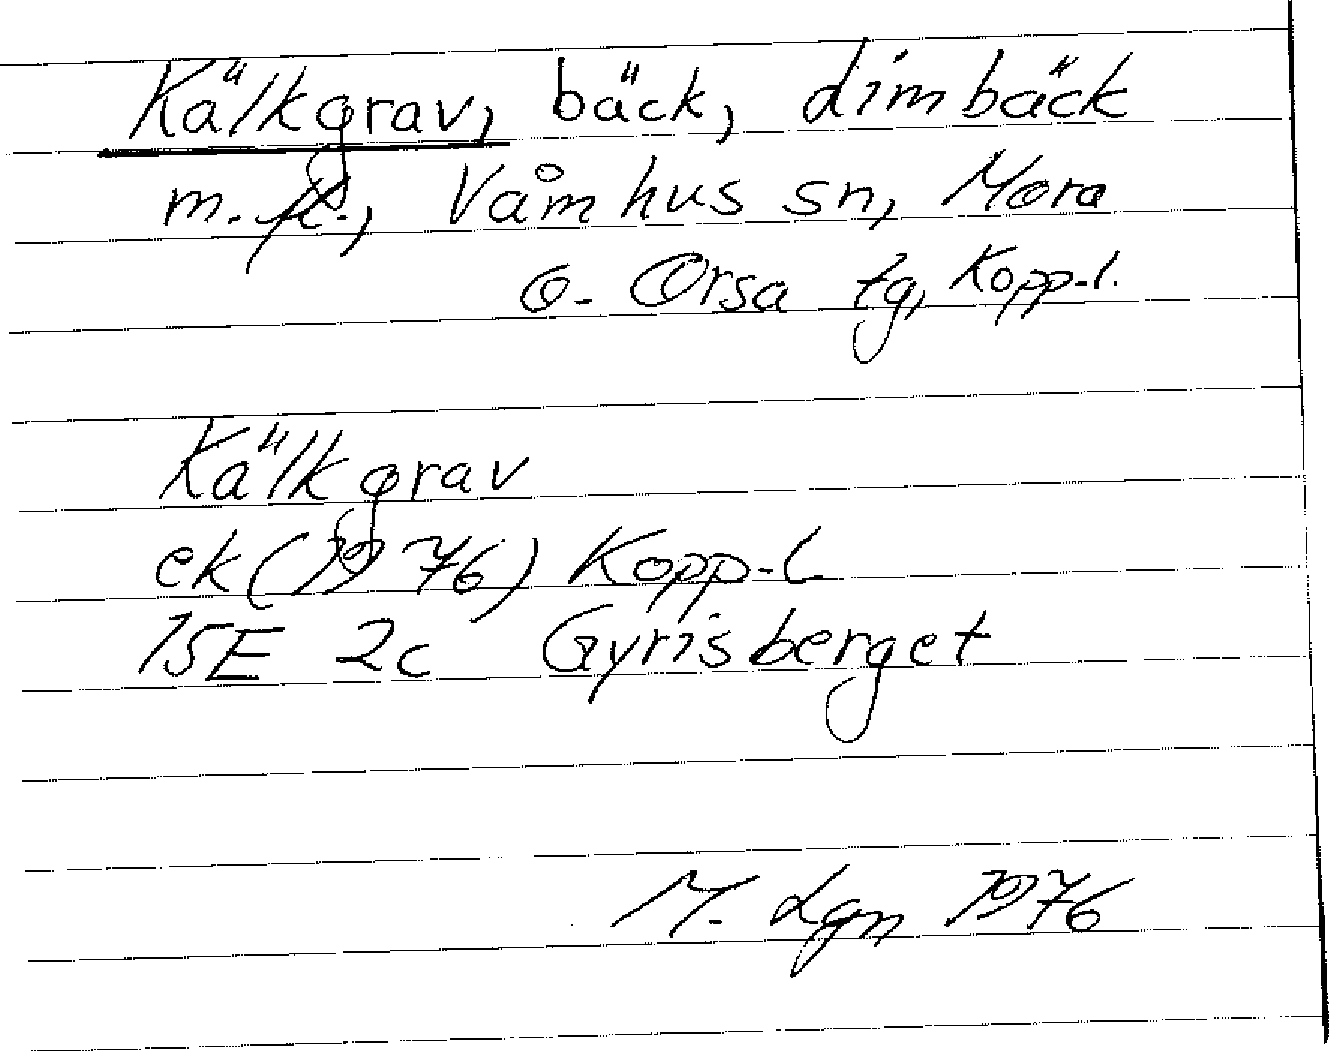 Kälkgrav, bäck, Limbäck
m. fl., Våmhus sn, Mora
o. Orsa tg, Kopp-l.
Kälkgrav
ek (1976) Kopp-l
15E 2c Gyrisberget
M. Lgn 1976